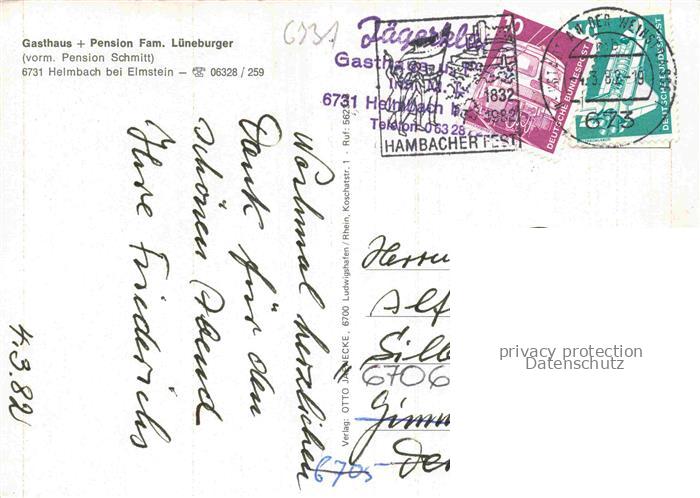 Gasthaus + Pension Fam. Lüneburger
(vorm. Pension Schmitt)
6731 Helmbach bei Elmstein — ☏ 06328 / 259
6731
Gastha
6731 Helmbach
Telefon 06328
1832
1982
HAMBACHER FEST
10
DEUTSCHE BUNDESPOST
DEUTSCHE BUNDESPOST
AN DER WEINST
673
Nochmal herzlichen
Dank für den
schönen Abend
Ihre Friederichs
4.3.82
Verlag: OTTO JAENECKE, 6700 Ludwigshafen/Rhein, Koschatstr. 1 · Ruf: 562
Herrn
Alf
Silb
6706
Gimm
6705
privacy protection
Datenschutz